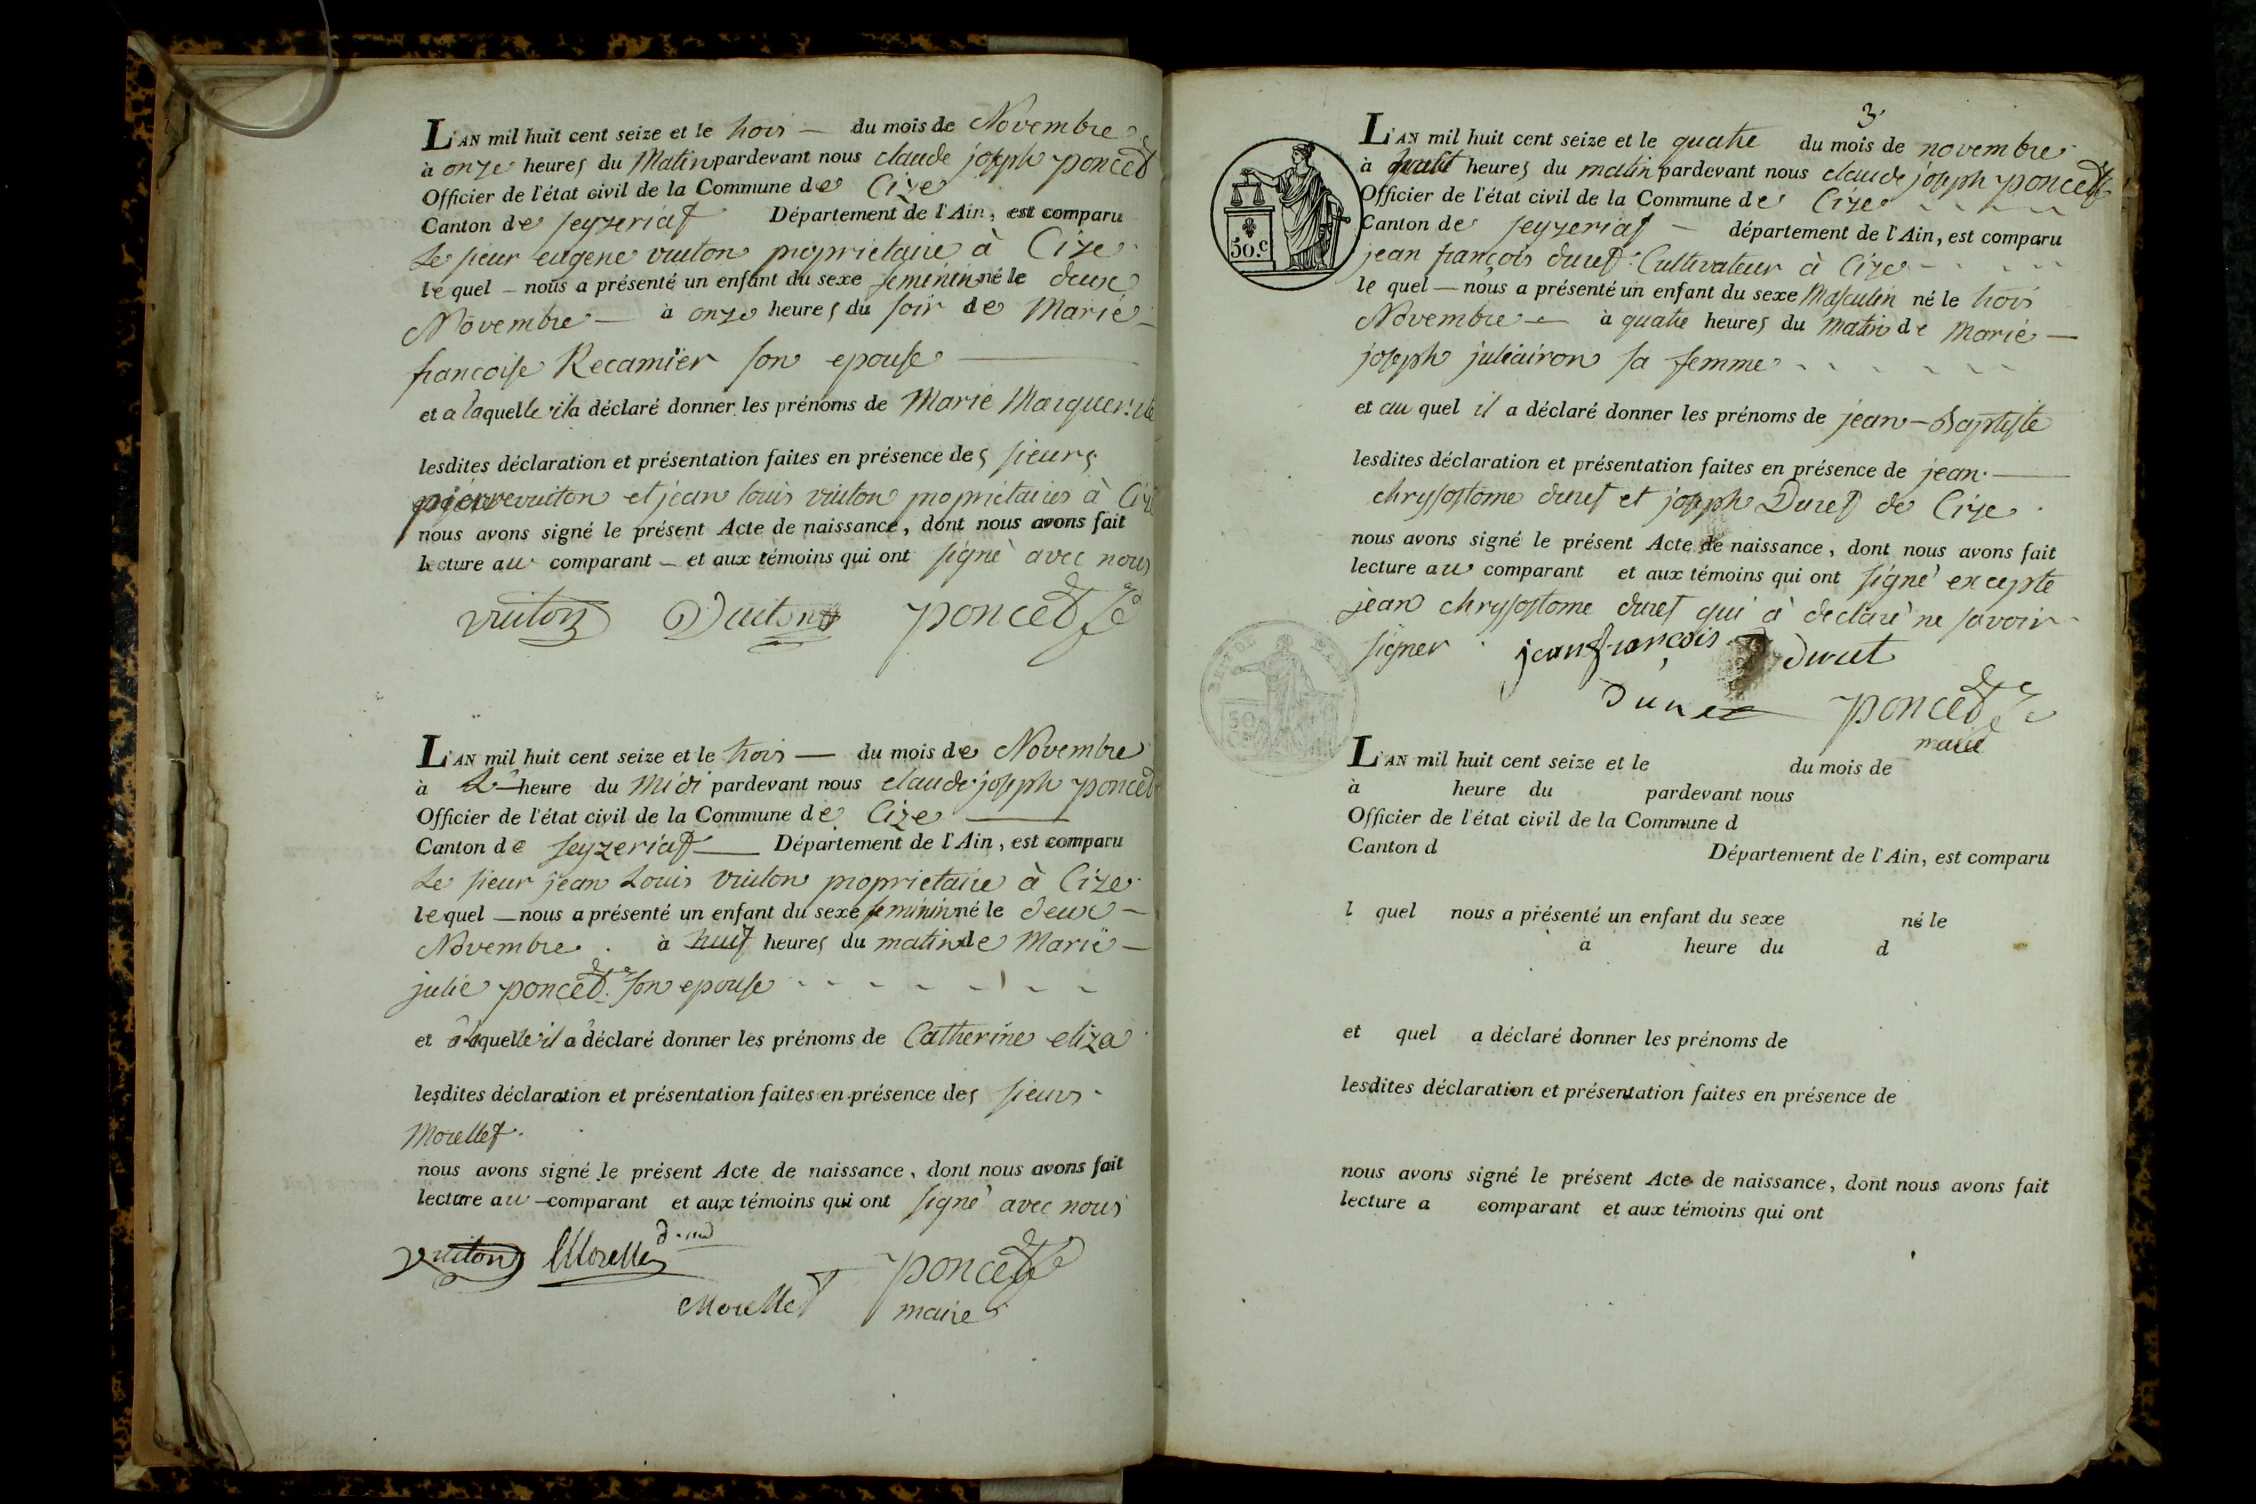 L'AN mil huit cent seize et le trois — du mois de Novembre
à onze heures du Matin pardevant nous claude joseph poncet
Officier de l'état civil de la Commune de Cize
Canton de seyzeriat Département de l'Ain, est comparu
Le sieur eugene vuiton proprietaire à Cize
lequel — nous a présenté un enfant du sexe feminin né le deux
Novembre — à onze heures du soir de Marie
francoise Recamier son epouse
et a laquelle il a déclaré donner les prénoms de Marie Marguerite
lesdites déclaration et présentation faites en présence des sieurs
pierre vuiton et jean louis vuiton proprietaires à Cize
nous avons signé le présent Acte de naissance, dont nous avons fait
lecture au comparant — et aux témoins qui ont signé avec nous
vuiton Vuiton poncet
L'AN mil huit cent seize et le trois — du mois de Novembre
à heure du Midi pardevant nous claude joseph poncet
Officier de l'état civil de la Commune de Cize
Canton de seyzeriat — Département de l'Ain, est comparu
Le sieur jean Louis vuiton proprietaire à Cize
lequel — nous a présenté un enfant du sexe feminin né le deux —
Novembre à huit heures du matin de Marie —
julie poncet son epouse
et à laquelle il a déclaré donner les prénoms de Catherine eliza
lesdites déclaration et présentation faites en présence des sieurs
Morellet
nous avons signé le présent Acte de naissance, dont nous avons fait
lecture au — comparant et aux témoins qui ont signé avec nous
vuiton Morellet poncet
Morellet maire
3
L'AN mil huit cent seize et le quatre du mois de novembre
à heures du matin pardevant nous claude joseph poncet
Officier de l'état civil de la Commune de Cize
Canton de seyzeriat — département de l'Ain, est comparu
50.c
jean françois duret Cultivateur à Cize
le quel — nous a présenté un enfant du sexe Masculin né le trois
Novembre — à quatre heures du Matin de Marie —
joseph juliairon sa femme
et au quel il a déclaré donner les prénoms de jean-Baptiste
lesdites déclaration et présentation faites en présence de jean
chrysostome duret et joseph Duret de Cize
nous avons signé le présent Acte de naissance, dont nous avons fait
lecture au comparant et aux témoins qui ont signé excepte
jean chrysostome duret qui à declaré ne savoir
signer jean françois duret
duret poncet
maire
L'AN mil huit cent seize et le du mois de
à heure du pardevant nous
Officier de l'état civil de la Commune d
Canton d Département de l'Ain, est comparu
l quel nous a présenté un enfant du sexe né le
à heure du d
et quel a déclaré donner les prénoms de
lesdites déclaration et présentation faites en présence de
nous avons signé le présent Acte de naissance, dont nous avons fait
lecture a comparant et aux témoins qui ont